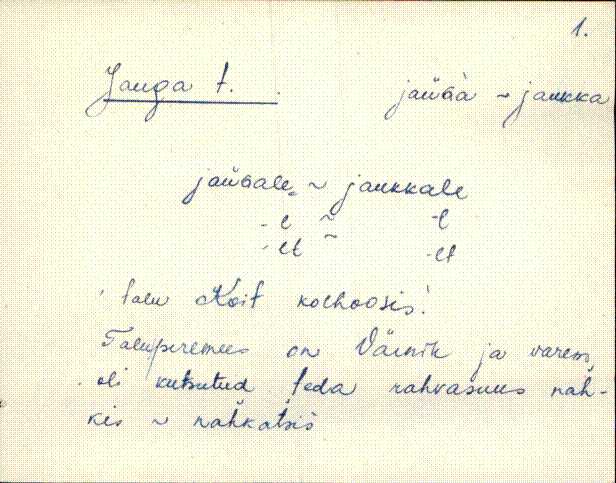 1.
Jauga t. jau̬ɢa ~ jaukka
jau̬ɢale ~ jaukkale
-l ~ -l
-lt ~ -lt
talu Koit kolhoosis.
Taluperemees on Värnik ja varem
oli kutsutud teda rahvasuus nah-
kis ~ nahkatsis